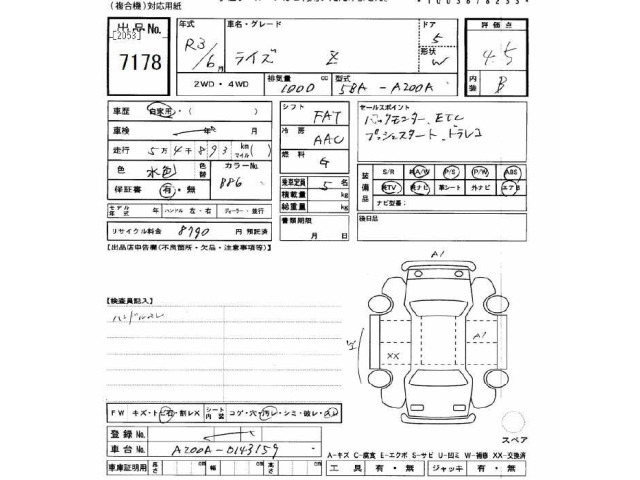 (複合機)対応用紙
出品No.
[2053]
7178
年式 R3/6月
車名・グレード
ライズ Z
ドア 5
形状 W
評価点
4.5
内装 B
2WD・4WD
排気量 1000 cc
型式 5BA-A200A
車歴 自家用・(
車検 年 月
走行 5万4千893 km(マイル)
色 水色
色替
カラーNo. B86
保証書 有・無
シフト FAT
冷房 AAC
燃料 G
乗車定員 5名
積載量 kg
総重量 kg
セールスポイント
バックモニター、ETC
プッシュスタート、ドラレコ
装備品
S/R 純A/W P/S P/W ABS
純TV 純ナビ 革シート 外ナビ エアB
ナビ型番:
モデル年式 年 ハンドル 左・右 ディーラー・並行
書類期限
月 日
後日品
リサイクル料金 8790 円 預託済
【出品店申告欄(不良箇所・欠品・注意事項等)】
【検査員記入】
ハンドルスレ
A1
A1
XX
FW キズ・ト
・割レX
シート内装 コゲ・穴・汚レ・シミ・破レ・スレ
登録No.
車台No. A200A-0143159
スペア
A-キズ C-腐食 E-エクボ S-サビ U-凹ミ W-補修 XX-交換済
車庫証明用 長さ cm 幅 cm 高さ cm
工具 有・無 ジャッキ 有・無